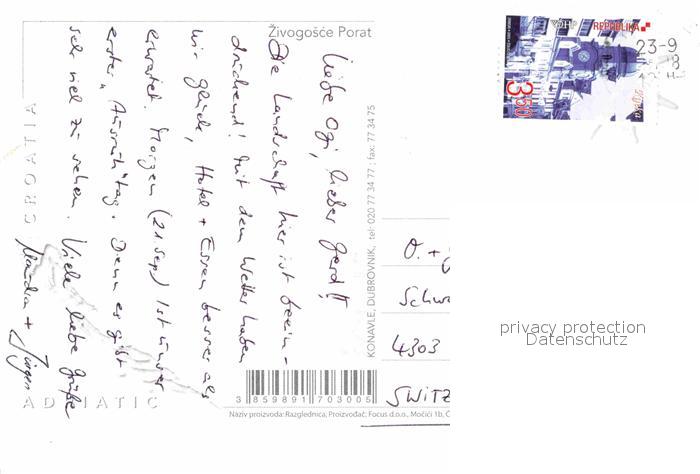 Živogošće Porat
Liebe Ogi, lieber Gerd!!
Die Landschaft hier ist beein-
druckend! Mit dem Wetter haben
wir Glück, Hotel + Essen besser als
erwartet. Morgen (21. Sep) ist unser
erster "Ausruh"tag. Denn es gibt
sehr viel zu sehen. Viele liebe Grüße
+ Jürgen
CROATIA
ADRIATIC
KONAVLE, DUBROVNIK, tel: 020 77 34 77 ; fax: 77 34 75
3 859891 703005
Naziv proizvoda: Razglednica, Proizvođač: Focus d.o.o., Močići 1b, Č
REPUBLIKA
3.50
23-9
O. +
Schw
4303
SWITZ
privacy protection
Datenschutz